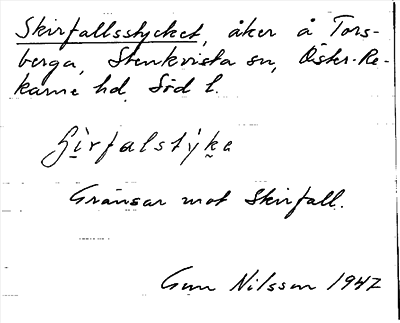 Skirfallsstycket, åker å Tors-
berga, Stenkvista sn, Öster-Re-
karne hd, Söd l.
Gränsar mot Skirfall.
Gun Nilsson 1947